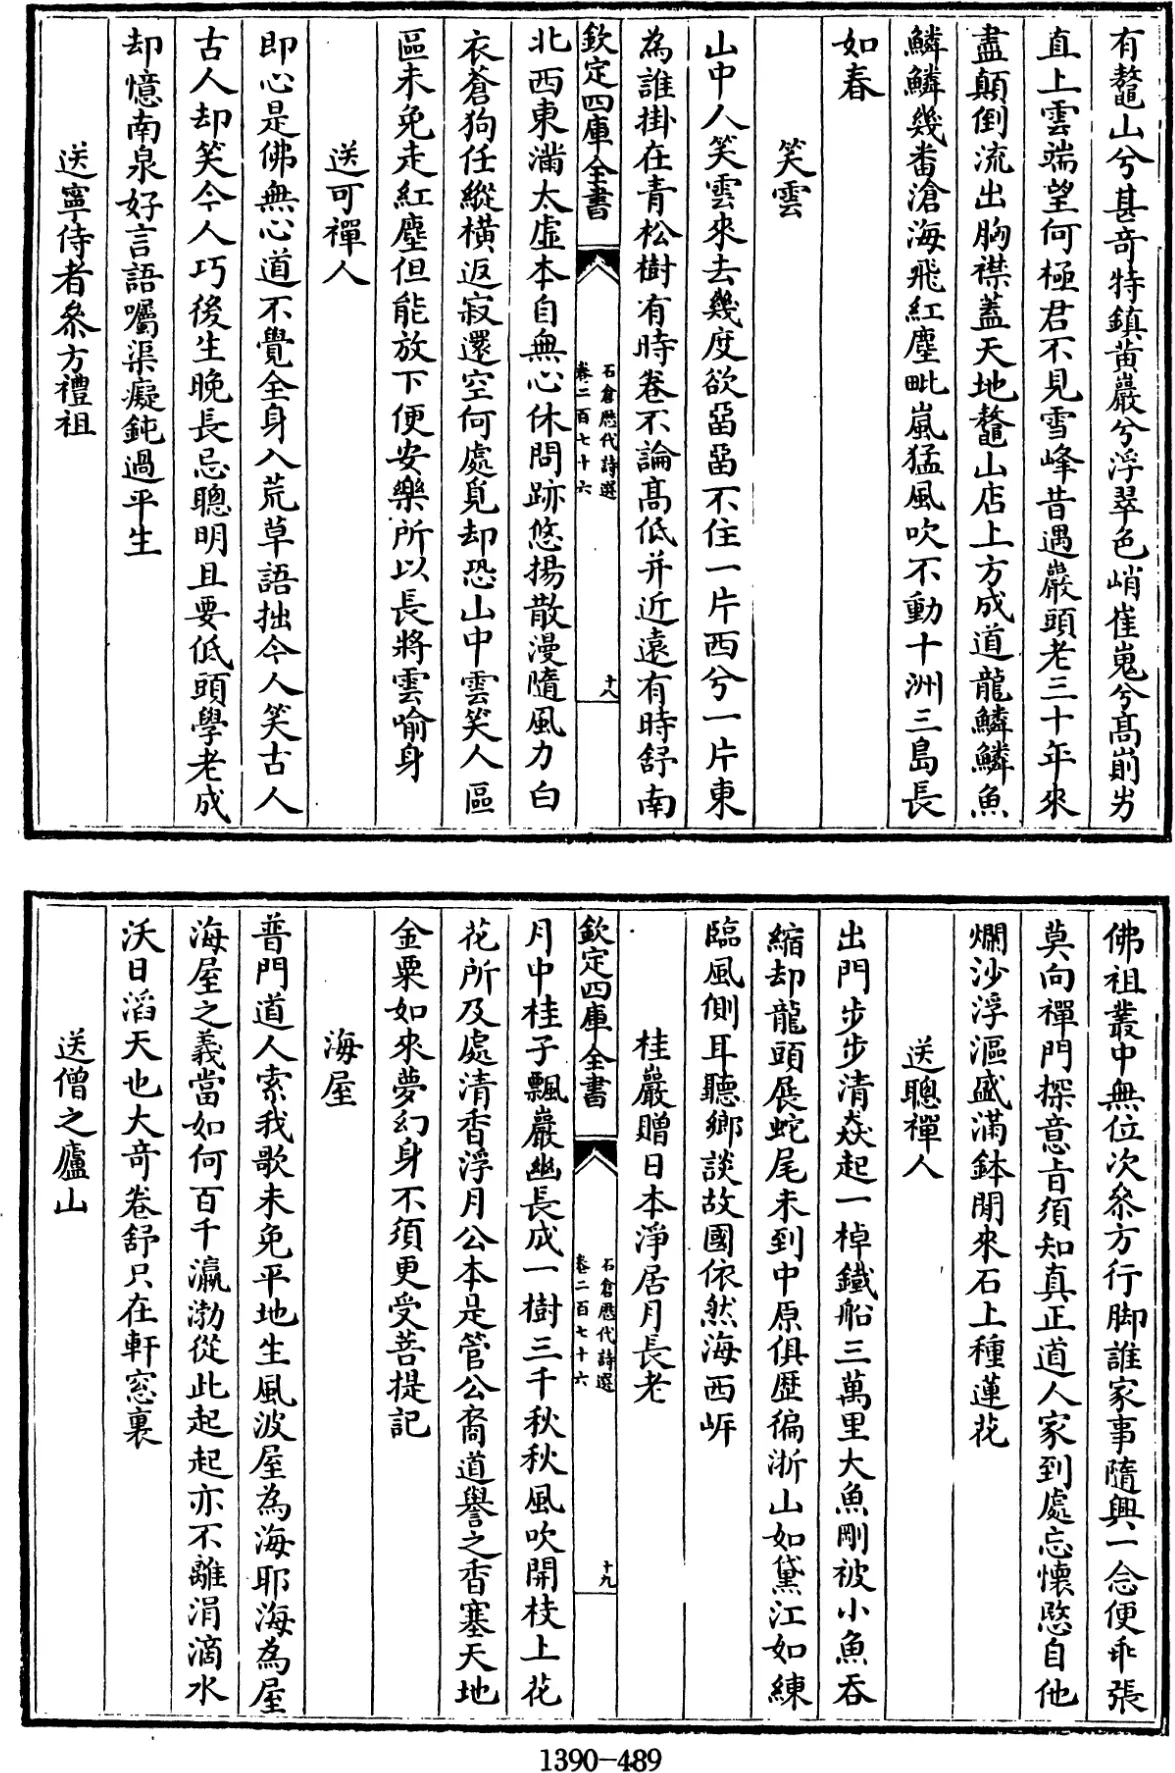 有鼇山兮甚奇特鎮黄巖兮浮翠色峭崔嵬兮髙崱屴
直上雲端望何極君不見雪峰昔遇巖頭老三十年來
盡顛倒流出胸襟蓋天地鼇山店上方成道龍鱗鱗魚
鱗鱗幾畨滄海飛紅塵毗嵐猛風吹不動十洲三島長
如春
笑雲
山中人笑雲來去幾度欲畱畱不住一片西兮一片東
為誰掛在青松樹有時卷不論髙低并近遠有時舒南
欽定四庫全書
石倉歴代詩選
卷二百七十六
十八
北西東滿太虛本自無心休問跡悠揚散漫隨風力白
衣蒼狗任縱橫返寂還空何處覓却恐山中雲笑人區
區未免走紅塵但能放下便安樂所以長將雲喻身
送可禪人
即心是佛無心道不覺全身入荒草語拙今人笑古人
古人却笑今人巧後生晚長忌聰明且要低頭學老成
却憶南泉好言語囑渠癡鈍過平生
送寧侍者叅方禮祖
佛祖叢中無位次叅方行脚誰家事隨興一念便乖張
莫向禪門探意㫖須知真正道人家到處忘懷愍自他
爛沙浮漚盛滿鉢閒來石上種蓮花
送聰禪人
出門步步清猋起一棹鐵船三萬里大魚剛被小魚吞
縮却龍頭展蛇尾未到中原俱歴徧浙山如黛江如練
臨風側耳聽鄉談故國依然海西㟁
桂巖贈日本淨居月長老
欽定四庫全書
石倉歴代詩選
卷二百七十六
十九
月中桂子飄巖幽長成一樹三千秋秋風吹開枝上花
花所及處清香浮月公本是管公裔道譽之香塞天地
金粟如來夢幻身不須更受菩提記
海屋
普門道人索我歌未免平地生風波屋為海耶海為屋
海屋之義當如何百千瀛渤從此起起亦不離涓滴水
沃日滔天也大奇卷舒只在軒窓裏
送僧之廬山
1390-489